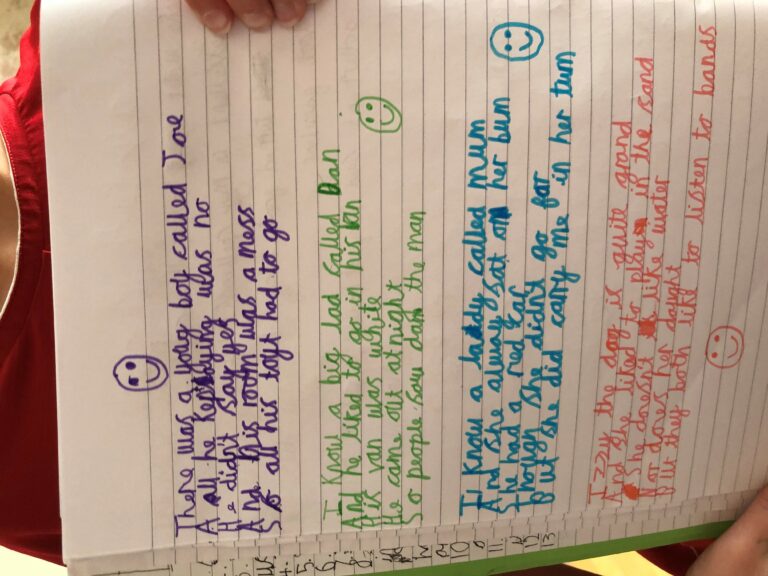 There was a youg boy called Joe
And all he knowing was no
He didn't say yes
And his room was a mess
So all his toys had to go
I know a big lad called Dan
And he liked to go in his van
His van was white
He came out at night
So people saw dan the man
I know a laddy called mum
And she always sat on her bum
She had a red car
Though she didn't go far
But she did carry me in her tum
Izzy the dog is quite grand
And she liked to play in the sand
She doesn't like water
Nor dones her daught
But they both like to listen to bands